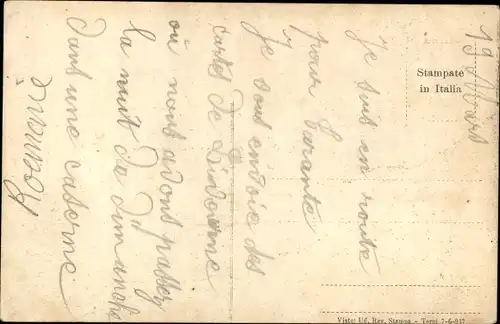 19 Mars
Je suis en route
pour Tarante
Je vous envoie des
cartes de Livourne
où nous avons passer
la nuit du dimanche
dans une caserne
Stampate
in Italia
Visto: Uf. Rev. Stampa - Terni 7-6-917